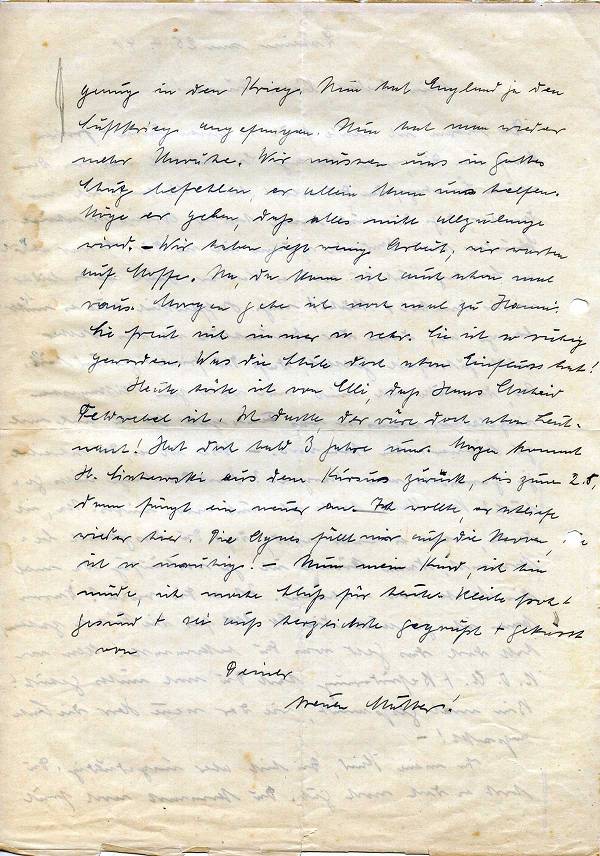 genug in den Krieg. Nun hat England ja den
Luftkrieg angefangen. Nun hat man wieder
mehr Unruhe. Wir müssen uns in Gottes
Schutz befehlen, er allein kann uns helfen.
Möge er geben, daß alles nicht allzulange
wird. – Wir haben jetzt wenig Arbeit, wir warten
auf Stoffe. Na, da kann ich auch schon mal
raus. Morgen gehe ich noch mal zu Hanni.
Sie freut sich immer so sehr. Sie ist so ruhig
geworden. Was die Stille doch schon Einfluss hat!
Heute hörte ich von Elli, daß Hans
Feldwebel ist. Ich dachte, der wäre doch schon Leut-
nant! Hat doch bald 3 Jahre rum. Morgen kommt
H. aus dem Kursus zurück, bis zum 2.8,
dann fängt ein neuer an. Ich wollte, er schliefe
wieder hier. Die Agnes fällt mir auf die Nerven,
ist so unruhig! – Nun mein Kind, ich bin
müde, ich mache Schluß für heute. Bleibe
gesund + sei aufs herzlichste gegrüßt + geküsst
von
Deiner
treuen Mutter!